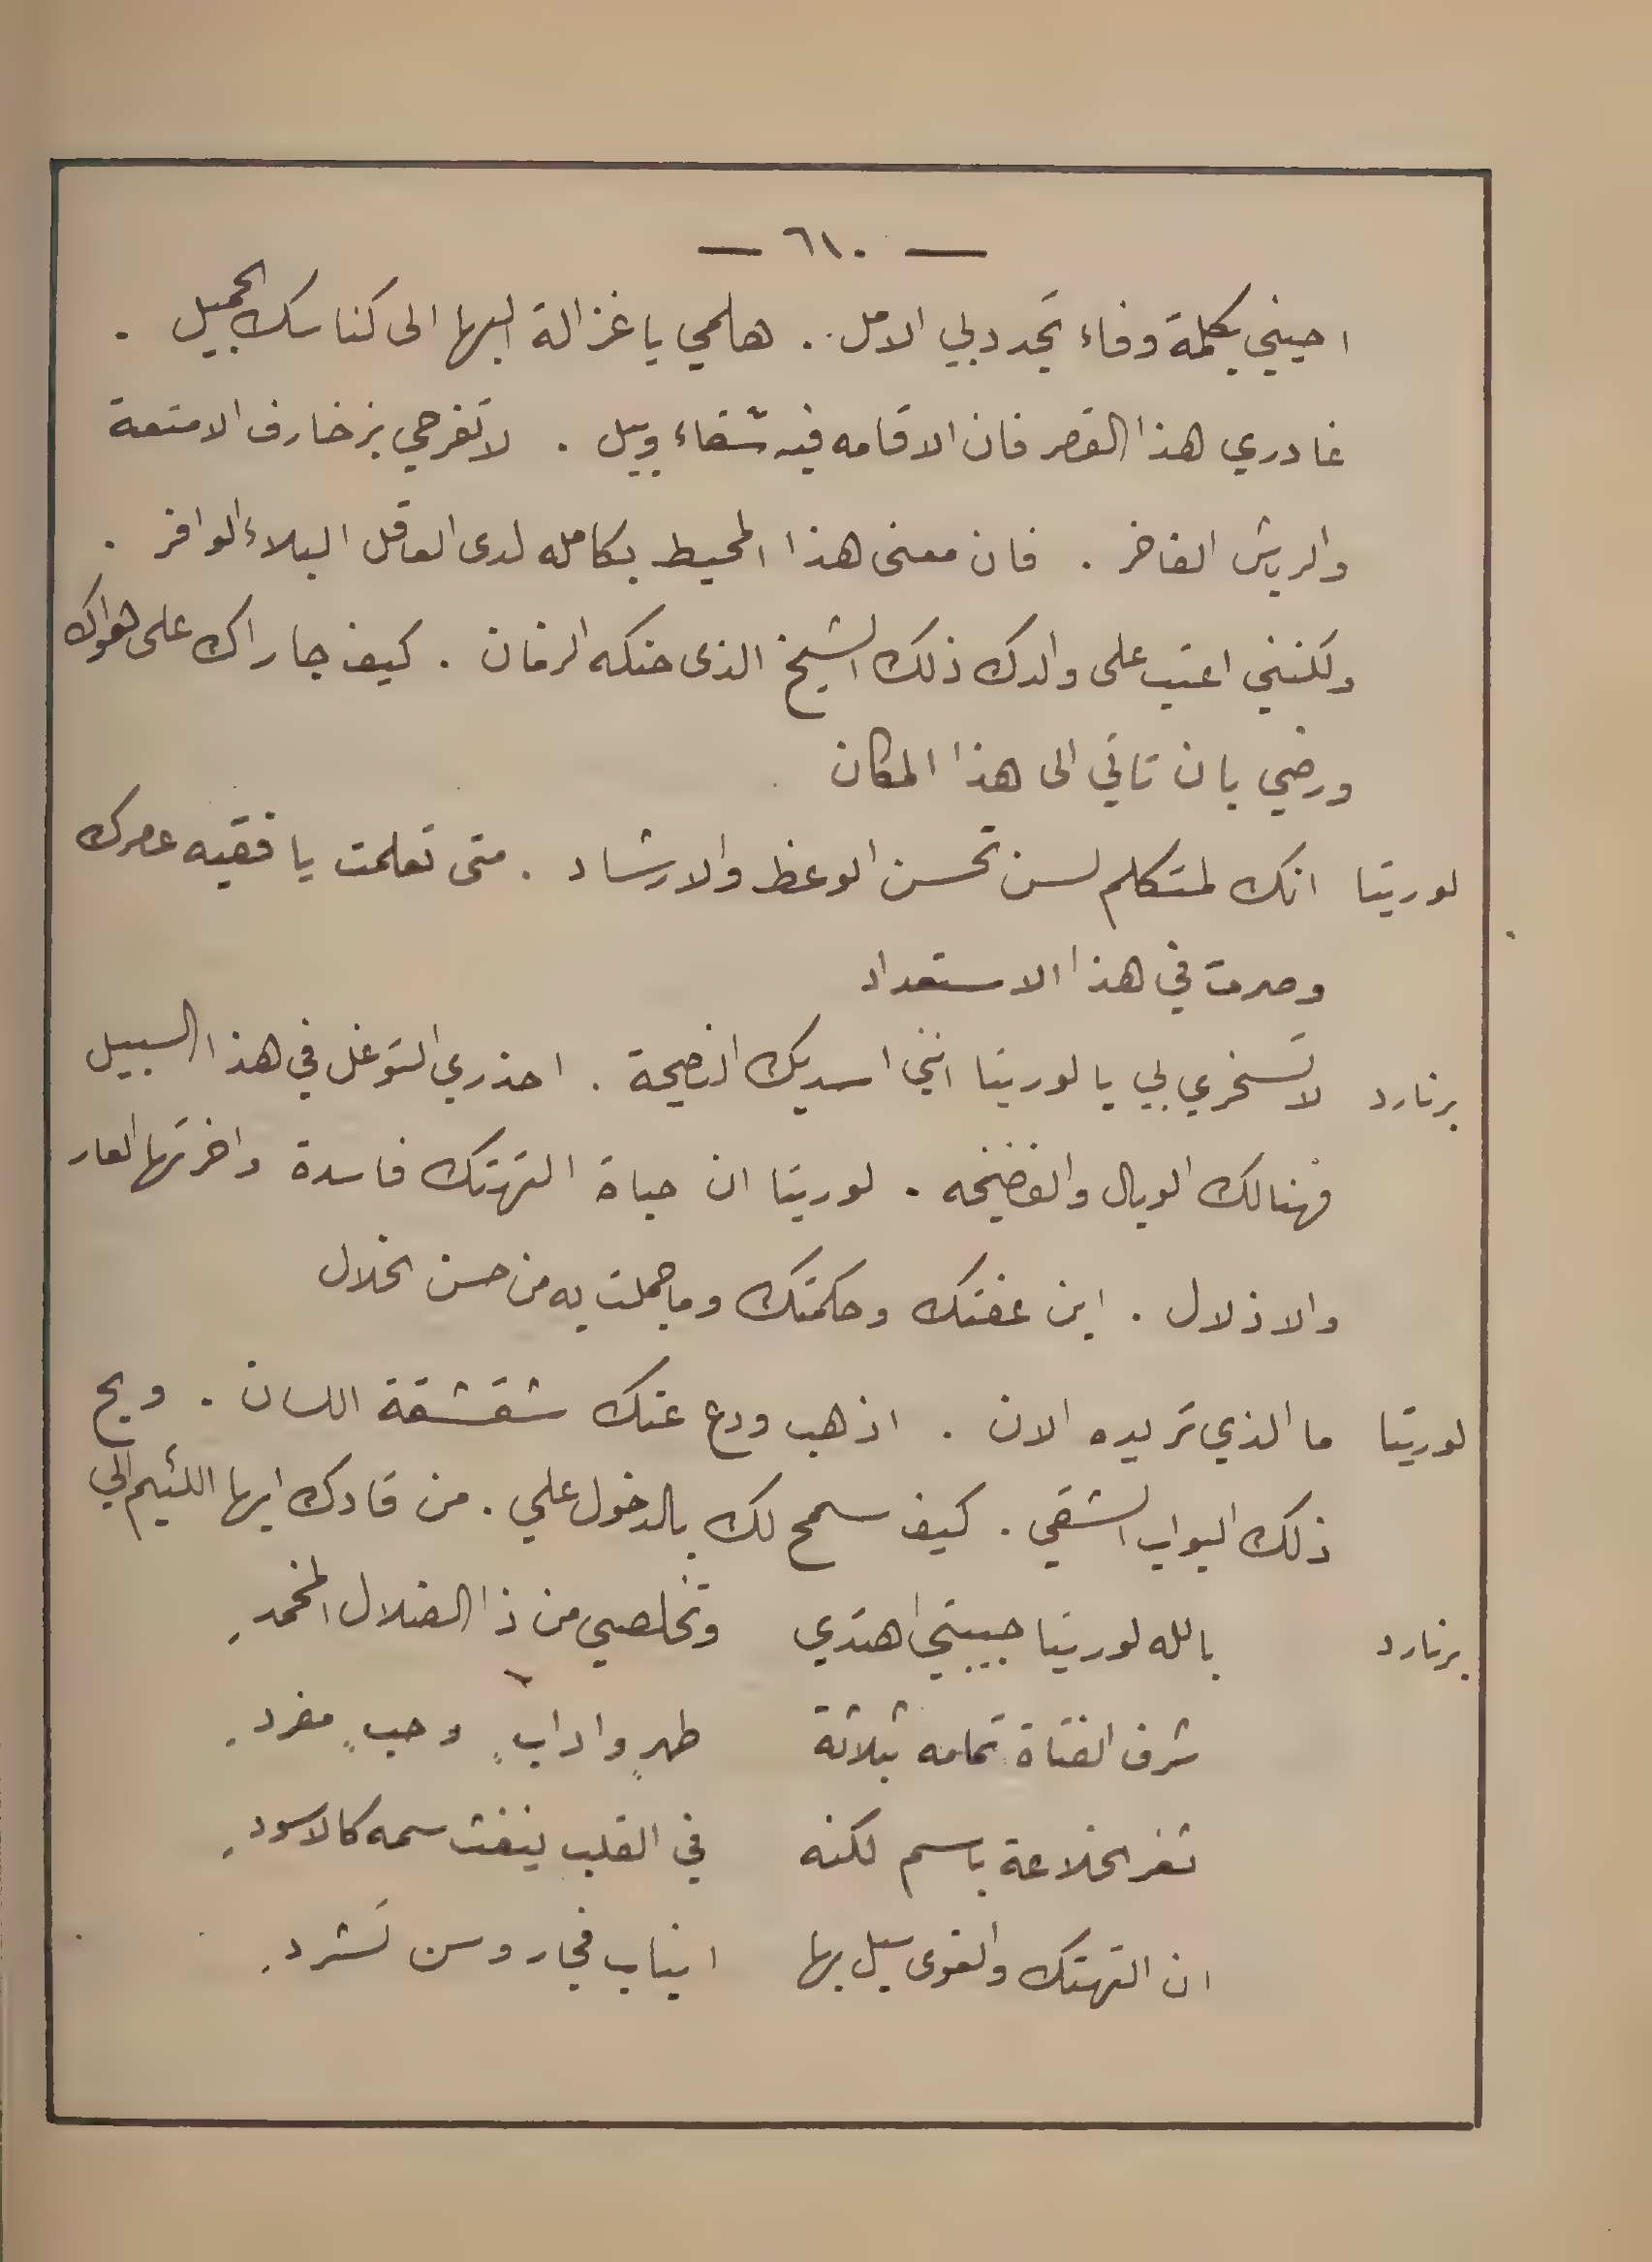 — ٦١٠ —
احييني بكلمة وفاء تجدد بي الامل . هلمي يا غزالة البها الى كناسك الجميل .
غادري هذا القصر فان الاقامه فيه شقاء وبيل . لا تفرحي بزخارف الامتعة
والريش الفاخر . فان معنى هذا المحيط بكامله لدى العاقل البلاء الوافر .
ولكنني اعتب على والدك ذلك الشيخ الذى حنكه الزمان . كيف جاراك على هواك
ورضي بان تاتي الى هذا المكان
لوريتا انك لمتكلم لسن تحسن الوعظ والارشاد . متى تعلمت يا فقيه عصرك
وصرت في هذا الاستعداد
برنارد لا تسخري بي يا لوريتا انني اسديك النصيحة . احذري التوغل في هذا السبيل
فهنالك الوبال والفضيحه . لوريتا ان حياة التهتك فاسدة واخرتها العار
والاذلال . اين عفتك وحكمتك وما جملت به من حسن الخلال
لوريتا ما الذي تريده الان . اذهب ودع عنك شقشقة اللسان . ويح
ذلك البواب الشقي . كيف سمح لك بالدخول علي . من قادك ايها اللئيم الي
برنارد بالله لوريتا حبيبتي اهتدي وتخلصي من ذا الضلال المخمد
شرف الفتاة تمامه بثلاثة طهرٍ وادابٍ وحبٍ مفردِ
ثغر الخلاعة باسم لكنه في القلب ينفث سمه كالاسودِ
ان التهتك والقوى سيل بها انياب فجار وسن تشردِ